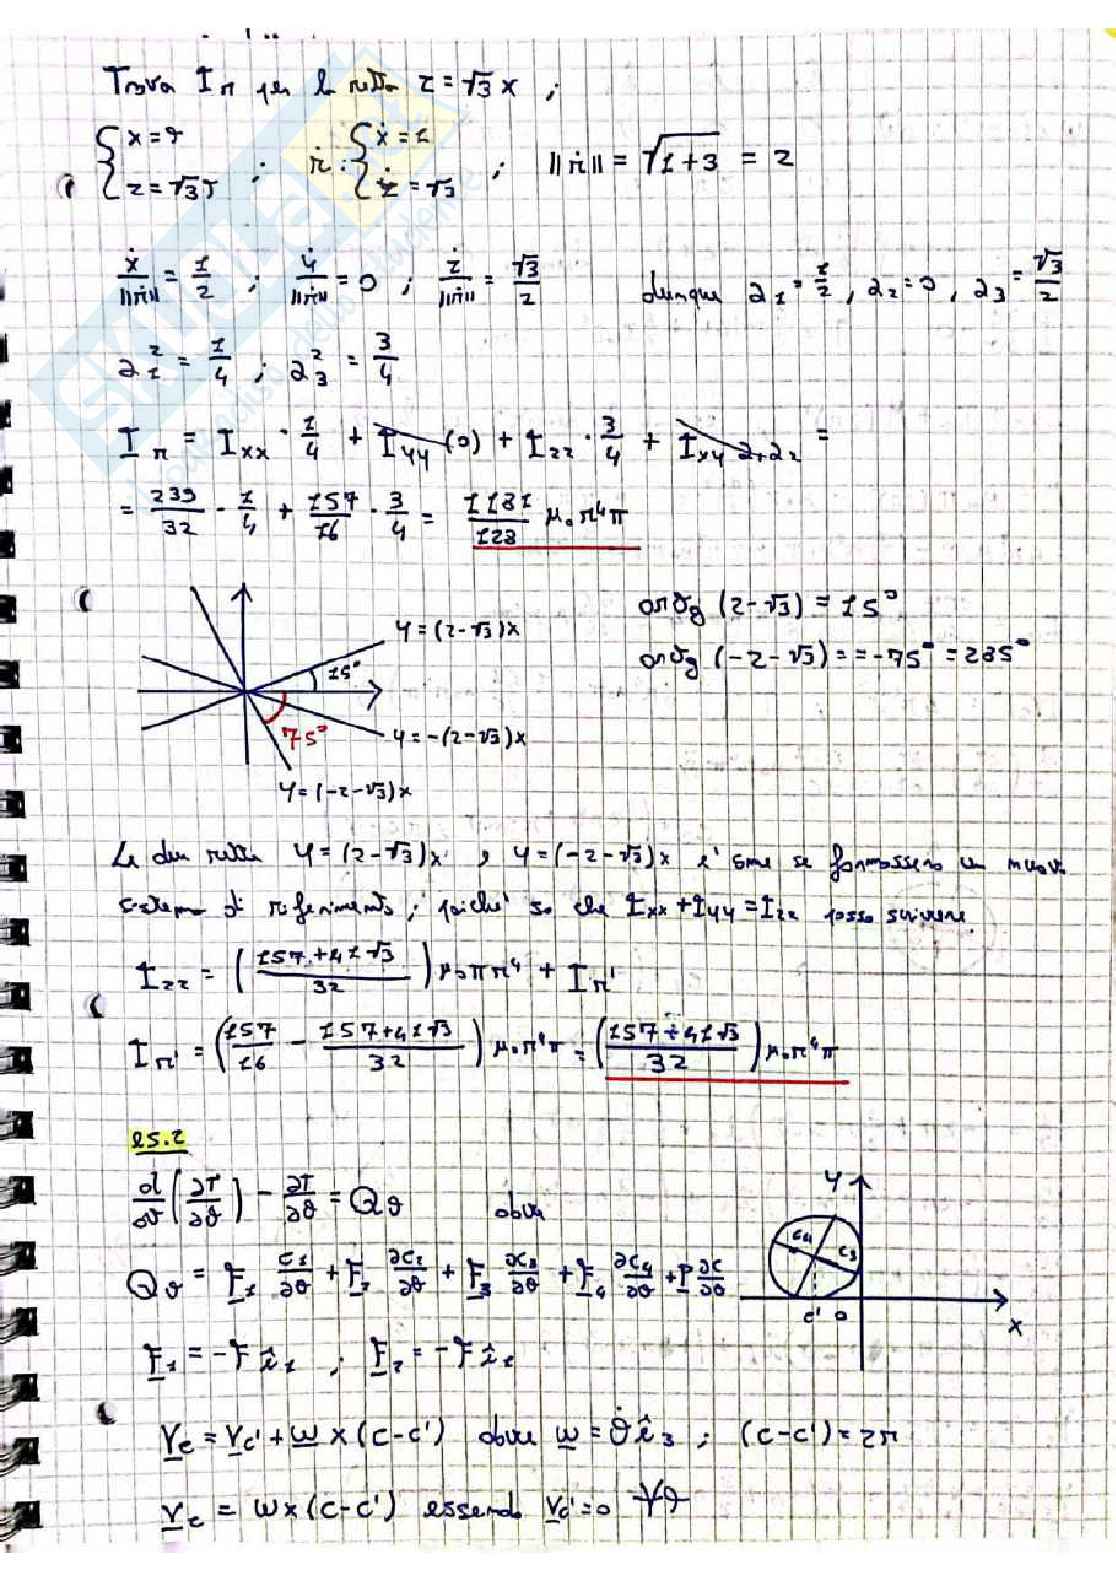 Trova Iπ per la retta z = √3 x ;
{ x = τ
z = √3 τ ; ṙ : { ẋ = 1
ż = √3 ; ||ṙ|| = √(1+3) = 2
ẋ/||ṙ|| = 1/2 ; ẏ/||ṙ|| = 0 ; ż/||ṙ|| = √3/2 dunque a₁ = 1/2 , a₂ = 0 , a₃ = √3/2
a₁² = 1/4 ; a₃² = 3/4
Iπ = Ixx · 1/4 + Iyy (0) + Izz · 3/4 + Ixy a₁a₂ =
= 239/32 · 1/4 + 157/16 · 3/4 = 1181/128 μ₀ π⁴ π
arctg (2-√3) = 15°
arctg (-2-√3) = = -75° = 285°
y = (2-√3)x
15°
75°
y = -(2-√3)x
y = (-2-√3)x
Le due rette y = (2-√3)x , y = (-2-√3)x e' come se formassero un nuovo
sistema di riferimento ; poiche' so che Ixx + Iyy = Izz posso scrivere
Izz = ((157 + 41√3)/32) μ₀ π π⁴ + Iπ'
Iπ' = (157/16 - (157+41√3)/32) μ₀ π⁴ π = ((157 + 41√3)/32) μ₀ π⁴ π
es.2
d/dt (∂T/∂θ̇) - ∂T/∂θ = Qθ dove
Qθ = F₁ c₁/∂θ + F₂ ∂c₂/∂θ + F₃ ∂c₃/∂θ + F₄ ∂c₄/∂θ + P ∂c/∂θ
y
c₄
c₃
c' o
x
F₁ = -F ê₁ ; F₂ = -F ê₂
Vc = Vc' + ω × (c-c') dove ω = θ̇ ê₃ ; (c-c') = 2π
Vc = ω × (c-c') essendo Vc' = 0 ∀θ